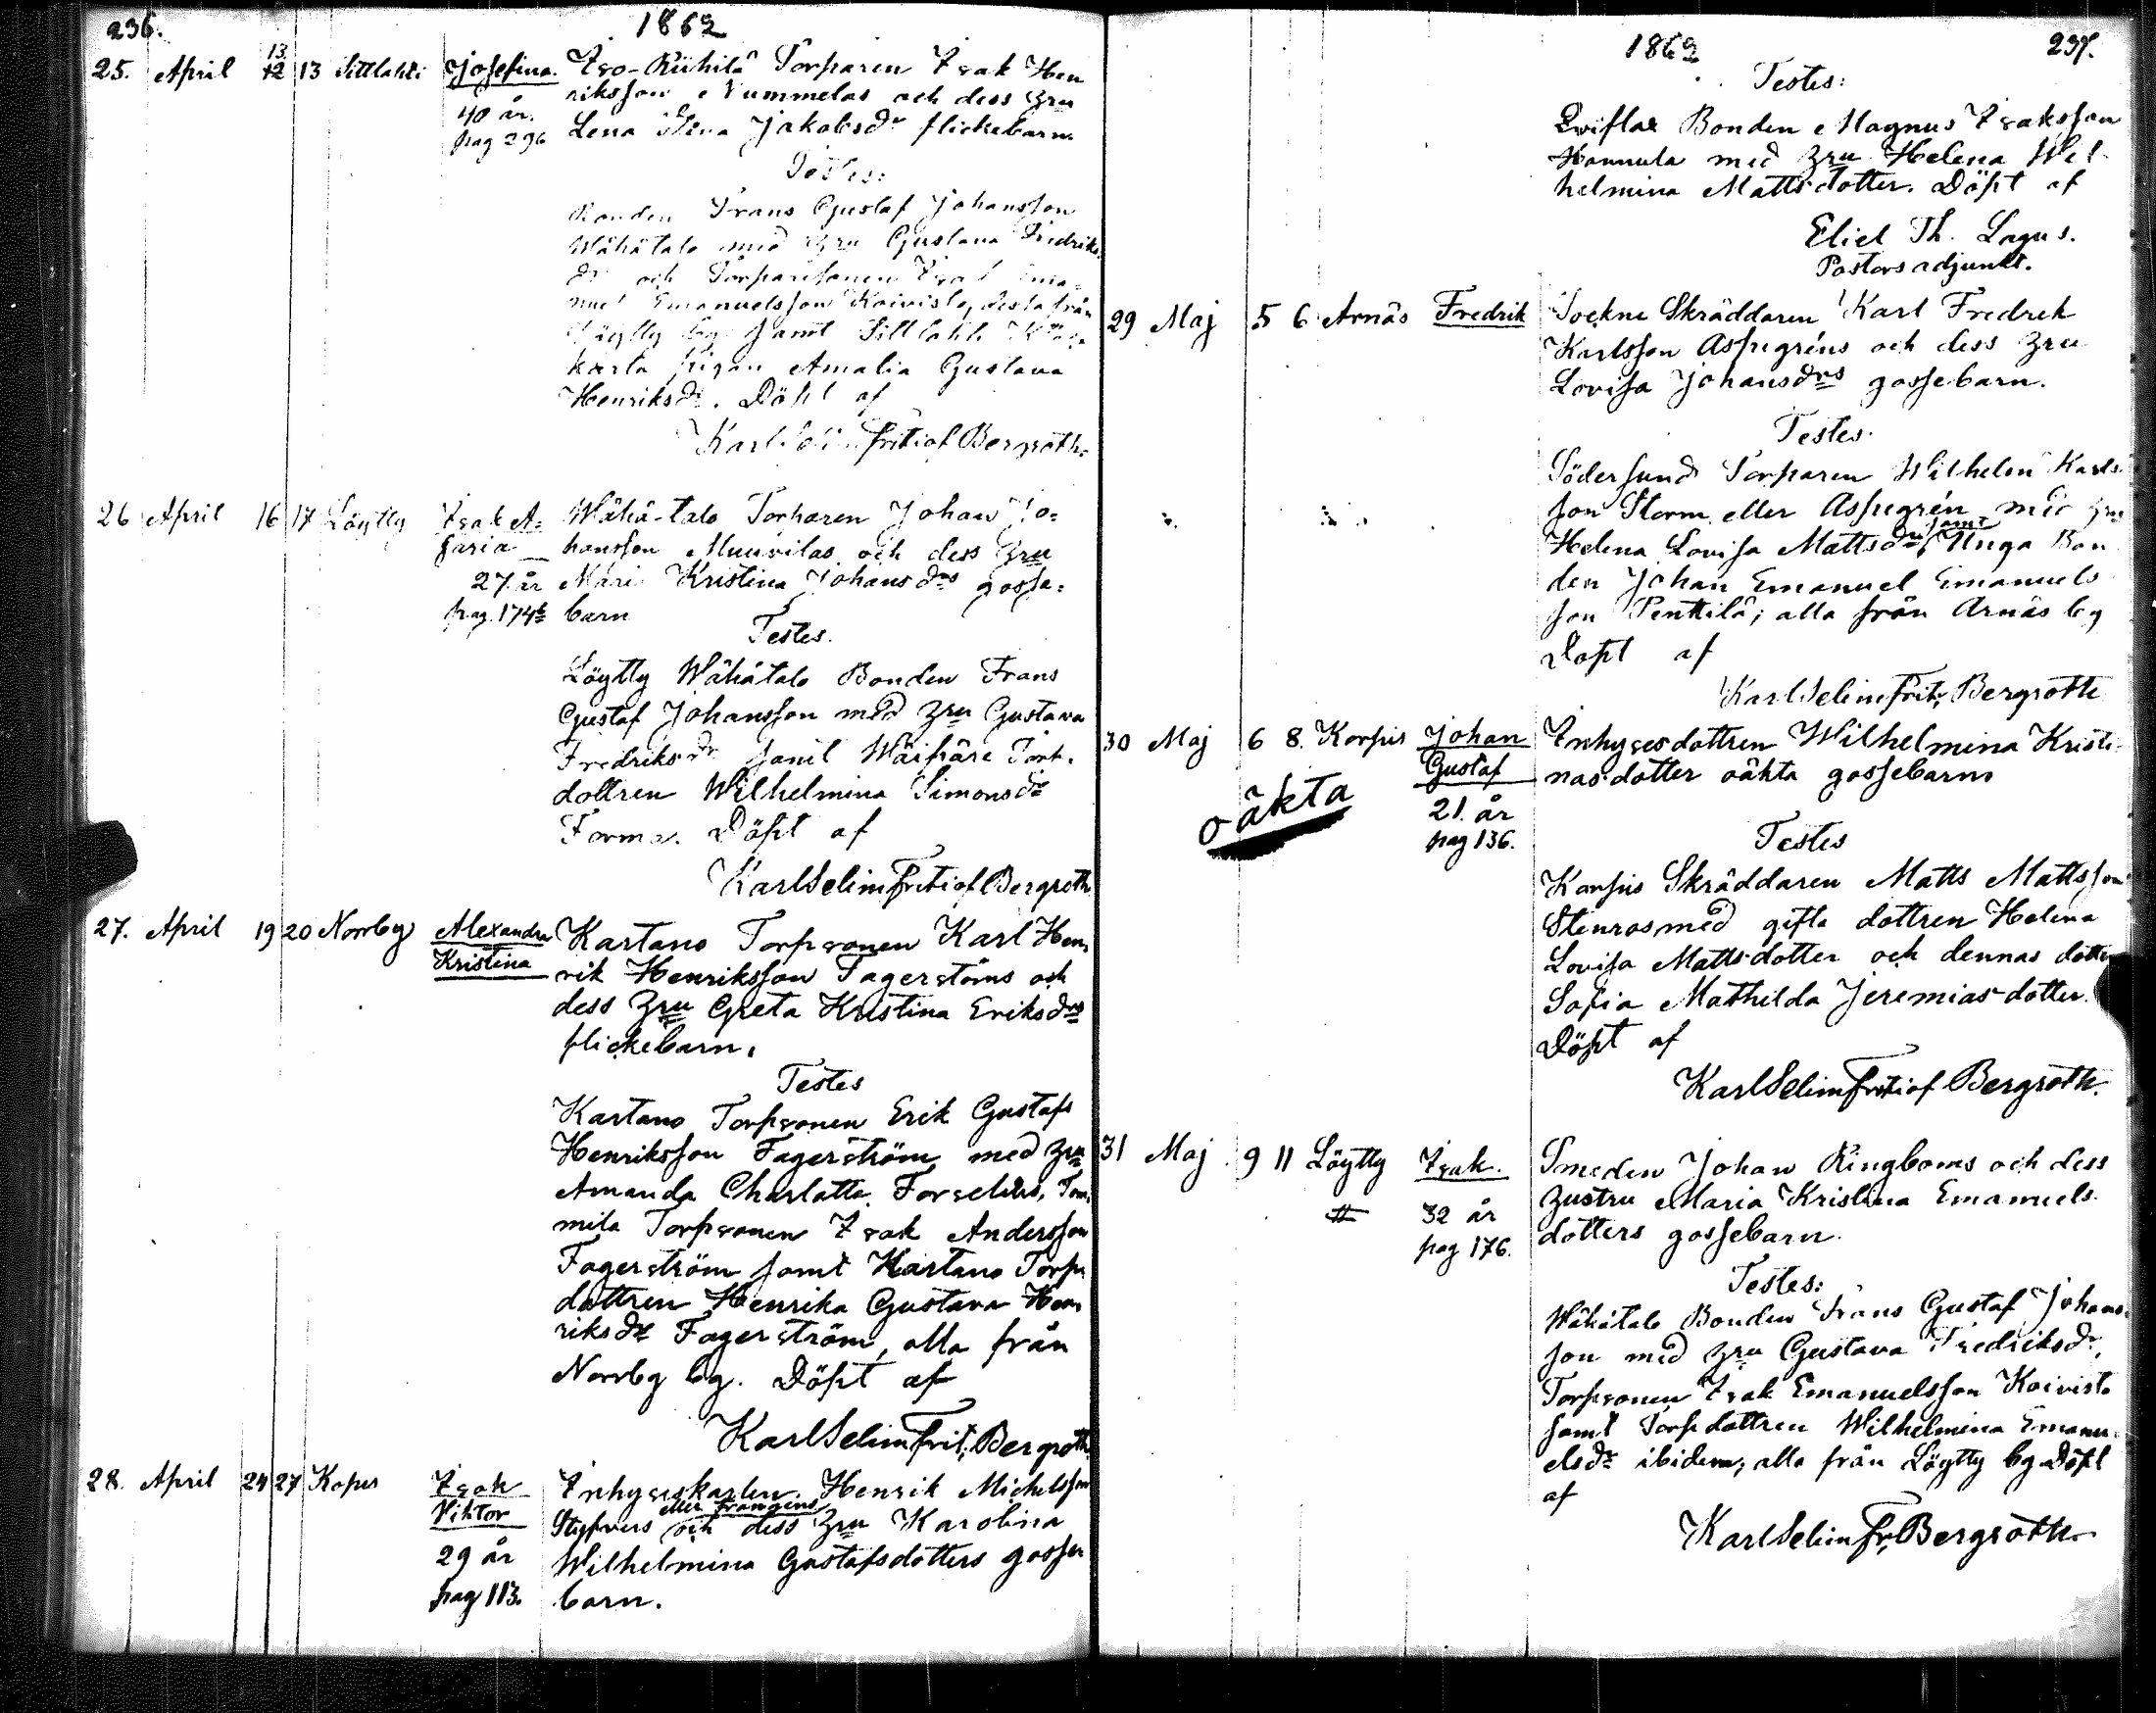 236.
1862
25. April 13 12 13 Sittlahti Josefina. Iso-Riihilä Torparen Isak Hen
riksson Nummelas och dess Hru
40 år.
pag 296 Lena Stina Jakobsdr flickebarn
Testes:
Bonden Frans Gustaf Johansson
Wähätalo med Hru Gustava Fredriks
dr och Torparesonen Isak Ema=
nuel Emanuelsson Koivisto, desta från
Löytty by samt Sittlahti
pigan Amalia Gustava
Henriksdr. Döpt af
Karl Selim Fritiof Bergroth.
26 April 16 17 Löytty Isak A= Wähä-talo Torparen Johan Jo=
saria hansson Muurilas och dess Hru
27 år Maria Kristina Johansdrs gosse=
pag. 174 barn
Testes.
Löytty Wähätalo Bonden Frans
Gustaf Johansson med Hru Gustava
Fredriksdr samt Torp.
dottren Wilhelmina Simonsdr
Forma. Döpt af
Karl Selim Fritiof Bergroth
27. April 19 20 Norrby Alexandra Kartano Torpsonen Karl Hen
Kristina rik Henriksson Fagerströms och
dess Hru Greta Kristina Eriksdrs
flickebarn.
Testes
Kartano Torpsonen Erik Gustaf
Henriksson Fagerström med Hru
Amanda Charlotta Forselius, Tom
mila Torpsonen Isak Andersson
Fagerström samt Kartano Torp
dottren Henrika Gustava Hen
riksdr Fagerström, alla från
Norrby by. Döpt af
Karl Selim Frit. Bergroth
28. April 24 27 Kopis Isak Inhyseskarlen Henrik Michelsson
eller Frangens
Viktor Styfvers och dess Hru Karolina
29 år Wilhelmina Gustafsdotters gosse
pag 113. barn.
1862 237.
Testes:
Qviflax Bonden Magnus Isaksson
Hannula med Hru Helena Wil-
helmina Mattsdotter. Döpt af
Eliel Th. Lagus.
Pastors adjunkt.
29 Maj 5 6 Arnäs Fredrik Sockne Skräddaren Karl Fredrik
Karlsson Aspegréns och dess Hru
Lovisa Johansdrs gossebarn.
Testes.
Södersund Torparen Wilhelm Karls
son Storm eller Aspegrén med Hru
samt
Helena Lovisa Mattsdr, Unga Bon
den Johan Emanuel Emanuels
son Penttilä; alla från Arnäs by
Döpt af
Karl Selim Frit. Bergroth
30 Maj 6 8. Korpis Johan Inhysesdottren Wilhelmina Kristi-
Gustaf nasdotter oäkta gossebarn
oäkta
21. år
pag 136.
Testes
Korpis Skräddaren Matts Mattsson
Stenros med gifta dottren Helena
Lovisa Mattsdotter och dennas dotter
Sofia Mathilda Jeremiasdotter.
Döpt af
Karl Selim Fritiof Bergroth.
31 Maj 9 11 Löytty Isak. Smeden Johan Ringboms och dess
Hustru Maria Kristina Emanuels-
32 år
pag 176. dotters gossebarn.
Testes:
Wähätalo Bonden Frans Gustaf Johans-
son med Hru Gustava Fredriksdr,
Torpsonen Isak Emanuelsson Koivisto
samt Torpdottren Wilhelmina Emanu-
elsdr ibidem, alla från Löytty by Döpt
af
Karl Selim Fr. Bergroth